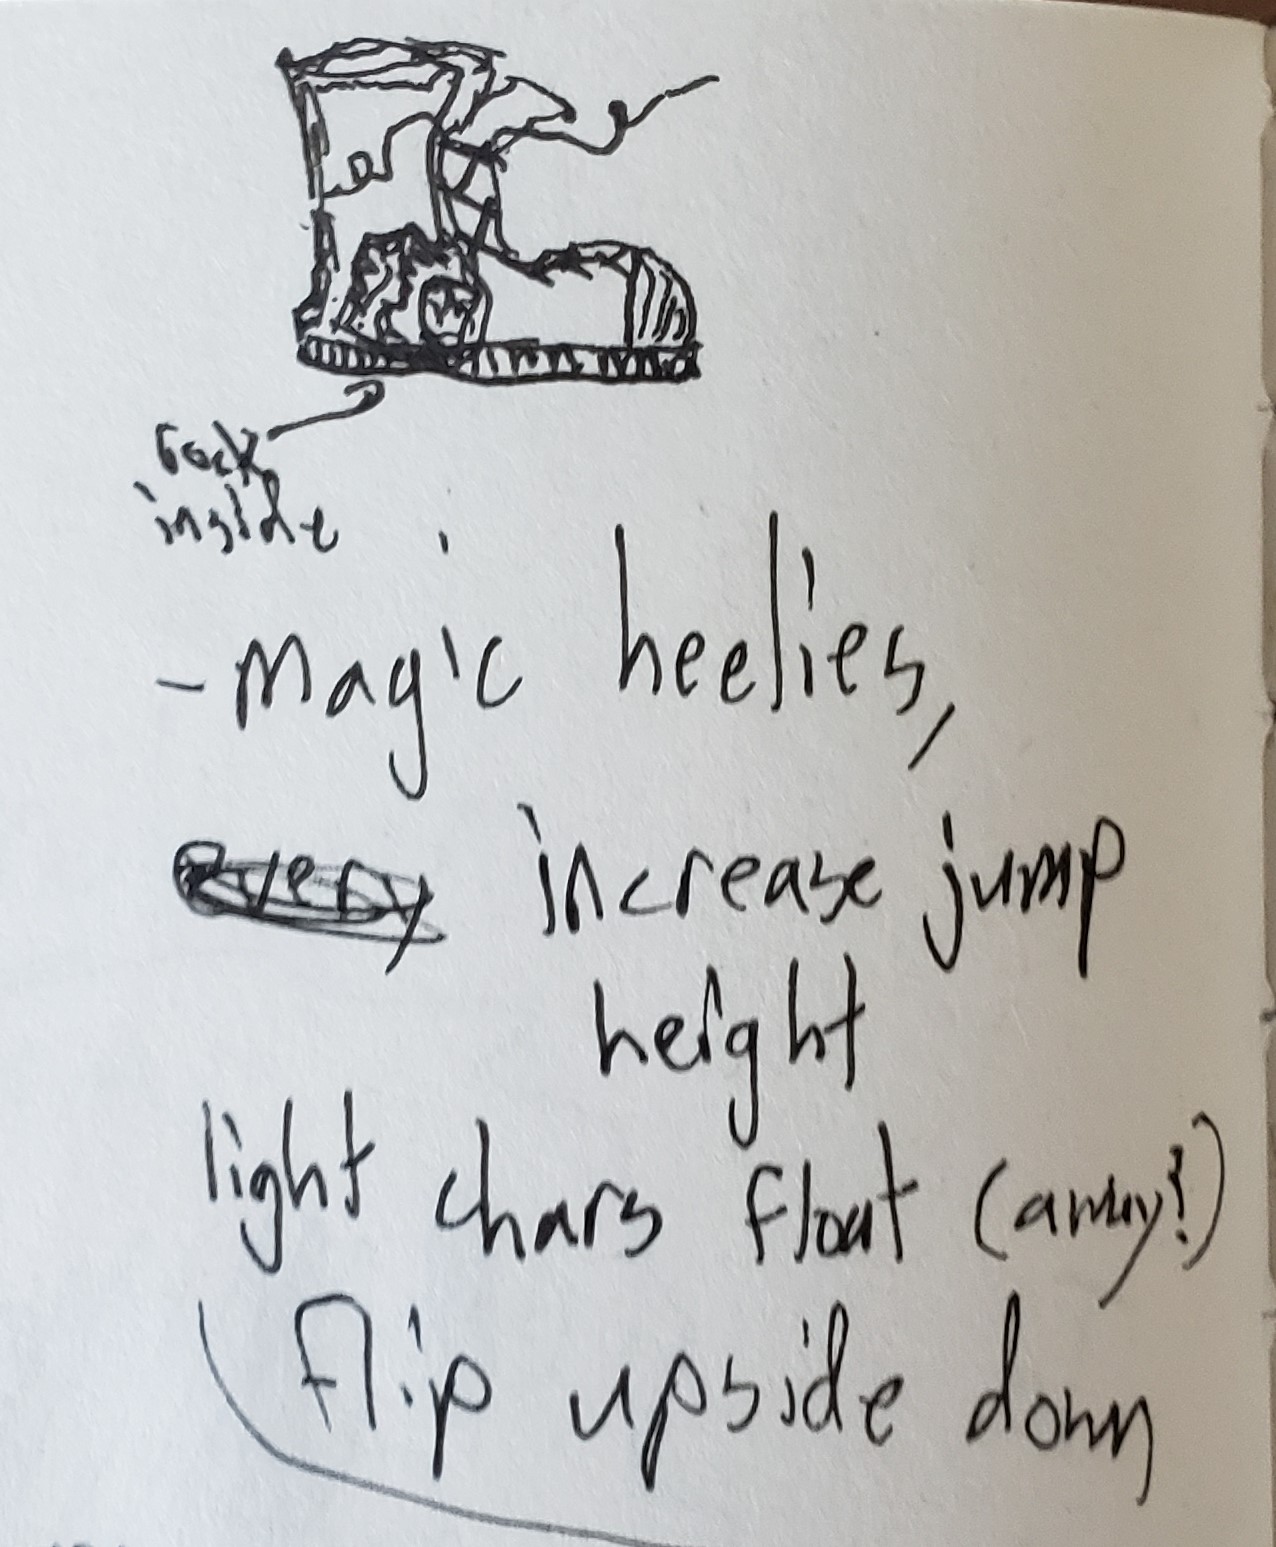 rock
inside
- Magic heelies,
increase jump
height
light chars float (away?)
flip upside down